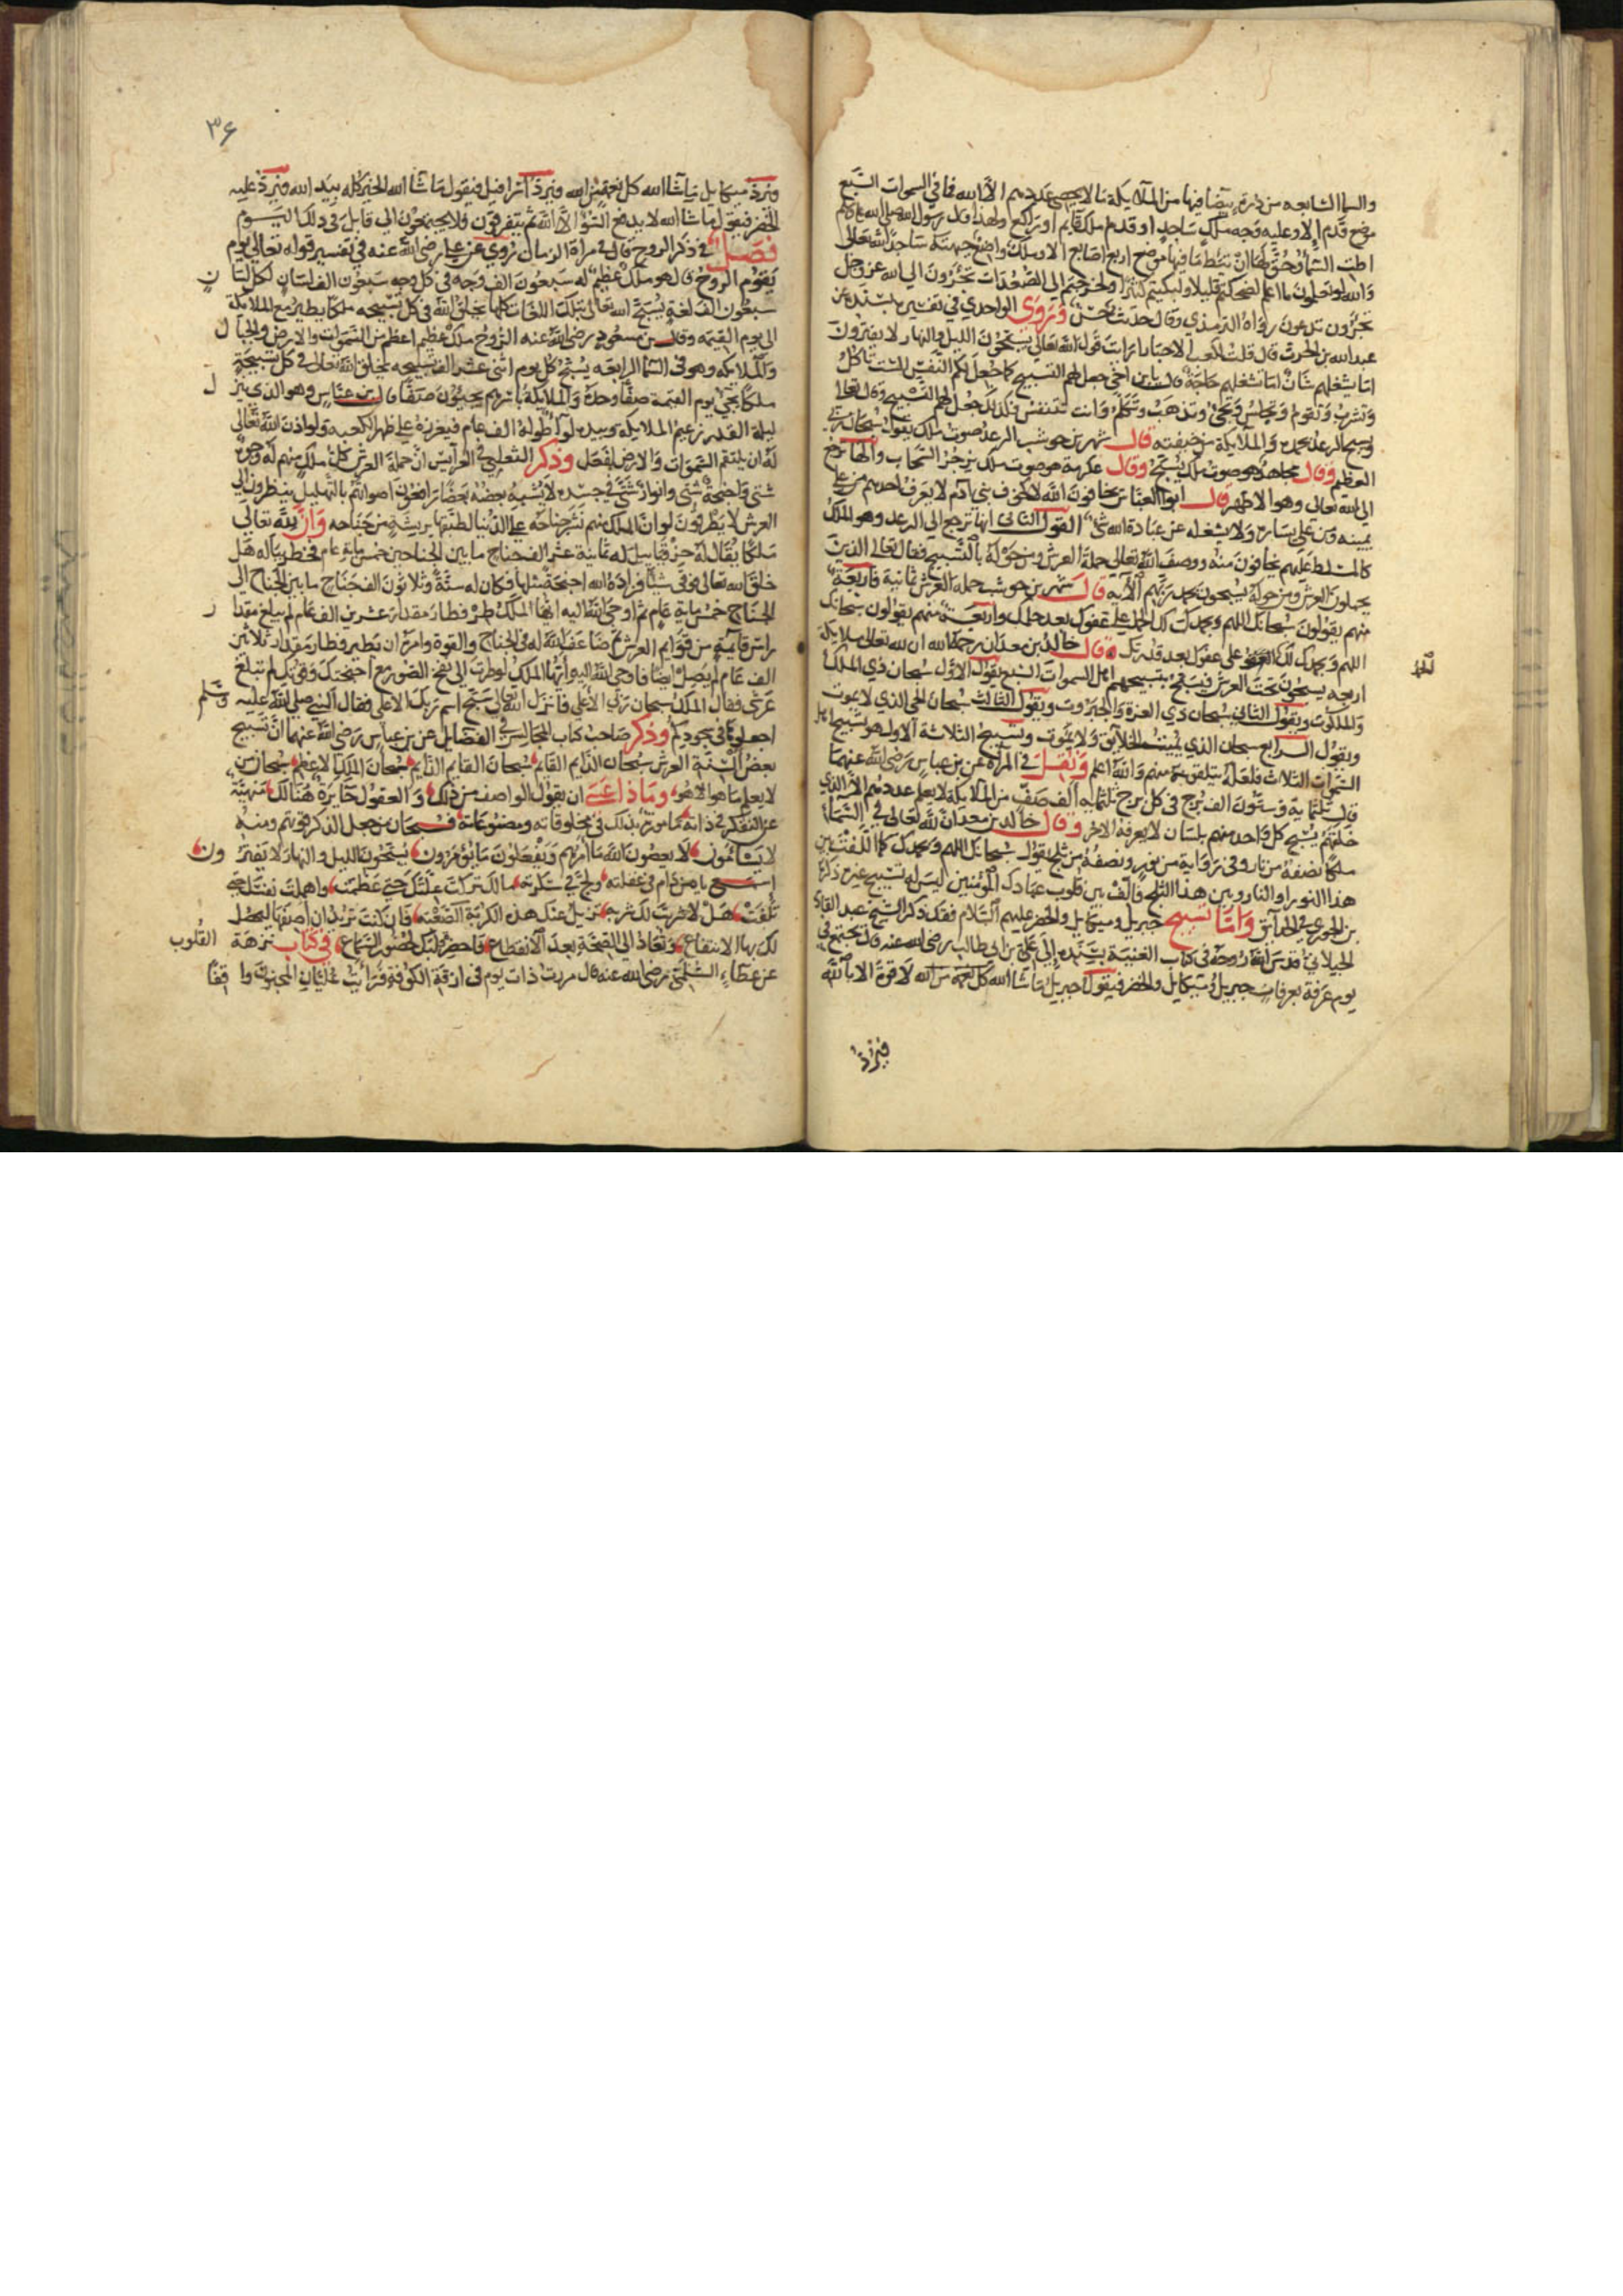 والسما السابعه من درة بيضا فيها من الملايكة ما لا يحصي عددهم الا الله فما في السموات السبع
موضع قدم الا وعليه وجه ملك ساجد او قدم ملك قايم او راكع ولهذا قال رسول الله صلي الله عليه وسلم
اطت السما وحق لها ان تئط ما فيها موضع اربع اصابع الا وملك واضع جبهته ساجدا لله تعالى
والله لو تعلمون ما اعلم لضحكتم قليلا ولبكيتم كثيرا ولخرجتم الى الصعدات تجئرون الي الله عز وجل
تجئرون تدعون رواه الترمذي وقال حديث حسن وروي الواحدي في تفسيره بسنده عن
عبد الله بن الحرث قال قلت لكعب الاحبار ارايت قول الله تعالي يسبحون الليل والنهار لا يفترون
اما يشغلهم شان اما تشغلهم حاجة قال يا بن اخي جعل لهم التسبيح كما جعل لكم النفس الست تاكل
وتشرب وتقوم وتجلس وتجي وتذهب وتتكلم وانت تتنفس فكذلك جعل لهم التسبيح وقال تعالى
ويسبح الرعد بحمده والملايكة من خيفته قال شهر بن حوشب الرعد صوت ملك يقول سبحان ربي
العظيم وقال مجاهد هو صوت ملك يسبح وقال عكرمة هو صوت ملك يزجر السحاب
الى الله تعالى وهو الاظهر قال ابن العباس يخافون الله لا كخوف بني ادم لا يعرف احدهم من علي
يمينه ومن على يساره ولا يشغله عن عبادة الله شي القول الثاني انها ترجع الى الرعد وهو الملك
كالمتسلط عليهم يخافون منه ووصف الله تعالي حملة العرش ومن حوله بالتسبيح فقال تعالى الذين
يحملون العرش ومن حوله يسبحون بحمد ربهم الآيه قال شهر بن حوشب حملة العرش ثمانية فاربعة
منهم يقولون سبحانك اللهم وبحمدك لك الحمد على عفوك بعد حلمك واربعة منهم يقولون سبحانك
اللهم وبحمدك لك على عفوك بعد قدرتك وقال خالد بن معدان رحمه الله ان لله تعالى ملايكة
اربعه يسبحون تحت العرش فيسبح بتسبيحهم اهل السموات السبع يقول الاول سبحان ذي الملك
والملكوت ويقول الثاني سبحان ذي العزة والجبروت ويقول الثالث سبحان الحي الذي لا يموت
ويقول الرابع سبحان الذي يميت الخلايق ولا يموت وتسبيح الثلاثة الاول هو تسبيح اهل
السموات الثلاث فلعله يتلقي منهم والله اعلم ونقل في المرآة عن بن عباس رضي الله عنهما
قال ثلثمايه وستون الف برج في كل برج ثلثمايه الف صف من الملايكة لا يعلم عددهم الا الذي
خلقهم يسبح كل واحد منهم بلسان لا يعرفه الاخر وقال خالد بن معدان لله تعالى في السماء
ملكا نصفه من نار وفي رواية من نور ونصفه من ثلج يقول سبحانك اللهم وبحمدك كما الفت بين
هذا النور او النار وبين هذا الثلج فالف بين قلوب عبادك المؤمنين ليس له تسبيح غيره ذكره
بن الجوزي في الحدائق واما تسبيح جبريل وميكايل والخضر عليهم السلام فقد ذكر الشيخ عبد القادر
الجيلاني قدس الله روحه في كتاب الغنية بسنده الى علي بن ابي طالب رضي الله عنه قال يجتمع في
يوم عرفة بعرفات جبريل وميكايل والخضر فيقول جبريل ما شا الله كل نعمة من الله لا قوة الا بالله
فيرد
فيرد ميكايل ما شا الله كل نعمة من الله فيرد اسرافيل فيقول ما شا الله الخير كله بيد الله فيرد عليه
الخضر فيقول ما شا الله لا يدفع السؤ الا الله ثم يتفرقون ولا يجتمعون الى قابل في ذلك اليوم
فصل في ذكر الروح قال في مراة الزمان روي عن علي رضي الله عنه في تفسير قوله تعالى يوم
يقوم الروح قال هو ملك عظيم له سبعون الف وجه في كل وجه سبعون الف لسان لكل لسان
سبعون الف لغة يسبح الله تعالى بتلك اللغات كلها يخلق الله في كل تسبيحه ملكا يطير مع الملايكة
الى يوم القيمه وقال بن مسعود رضي الله عنه الروح ملك عظيم اعظم من السموات والارض والجبال
والملايكه وهو في السما الرابعه يسبح كل يوم اثني عشر الف تسبيحه يخلق الله تعالى في كل تسبيحة
ملكا يجي يوم القيمة صفا وحده والملايكة باسرهم يجيؤن صفا قال بن عباس وهو الذي ينزل
ليلة القدر زعيم الملايكه وبيده لوآ طوله الف عام فيغرزه على ظهر الكعبه ولو اذن الله تعالى
له ان يلتقم السموات والارض لفعل وذكر الثعلبي في العرآيس ان حملة العرش كل ملك منهم له وجوه
شتى واجنحة شتى وانوار شتى في جسده لا يشبه بعضه بعضا رافعون اصواتهم بالتهليل ينظرون الي
العرش لا يطرفون لو ان الملك منهم نشر جناحه علي الدنيا لطبقها بريشة من جناحه وان لله تعالى
ملكا يقال له حزقيايل له ثمانية عشر الف جناح ما بين الجناحين خمس ماية عام فخطر بباله هل
خلق الله تعالى فوقي شيأ فزاده الله اجنحة مثلها فكان له ستة وثلاثون الف جناح ما بين الجناح الي
الجناح خمس ماية عام ثم اوحى الله اليه ايها الملك طر فطار مقدار عشرين الف عام لم يبلغ مقدار
راس قايمة من قوايم العرش ثم ضاعف الله له في الجناح والقوة وامره ان يطير فطار مقدار ثلاثين
الف عام لم يصل ايضا فاوحى الله اليه ايها الملك لو طرت الى نفخ الصور مع اجنحتك وقوتك لم تبلغ
عرشي فقال الملك سبحان ربي الاعلى فانزل الله تعالى سبح اسم ربك الاعلى فقال النبي صلي الله عليه وسلم
اجعلوها في سجودكم وذكر صاحب كتاب المجالس في الفضايل عن بن عباس رضي الله عنهما ان تسبيح
بعض السنة العرش سبحان الدايم القايم سبحان القايم الدايم سبحان الملك الاعظم سبحان من
لا يعلم ما هو الا هو وما ذا عسى ان يقول الواصف من ذلك والعقول حايرة هنالك منهية
عن التفكر في ذاته مامورة بذلك في مخلوقاته ومصنوعاته فسبحان من جعل الذكر قوتهم ومنه
لا يسامون لا يعصون الله ما امرهم ويفعلون ما يؤمرون يسبحون الليل والنهار لا يفترون
اسمع يا من دام في غفلته ولج في سكرته مالك تركت علتك حتى عظمت واهملت نفسك حتى
تلفت هل لا شربت لك شربة تزيل عنك هذه الكربة الصعبة فان كنت تريد ان اصفها ليحصل
لك بها الانتفاع وتعاد الى الصحة بعد الانقطاع فاحضر قلبك لحضور السماع في كتاب نزهة القلوب
عن عطاء السلمي رضي الله عنه قال مررت ذات يوم في ازقة الكوفة فرايت عليان المجنون واقفا